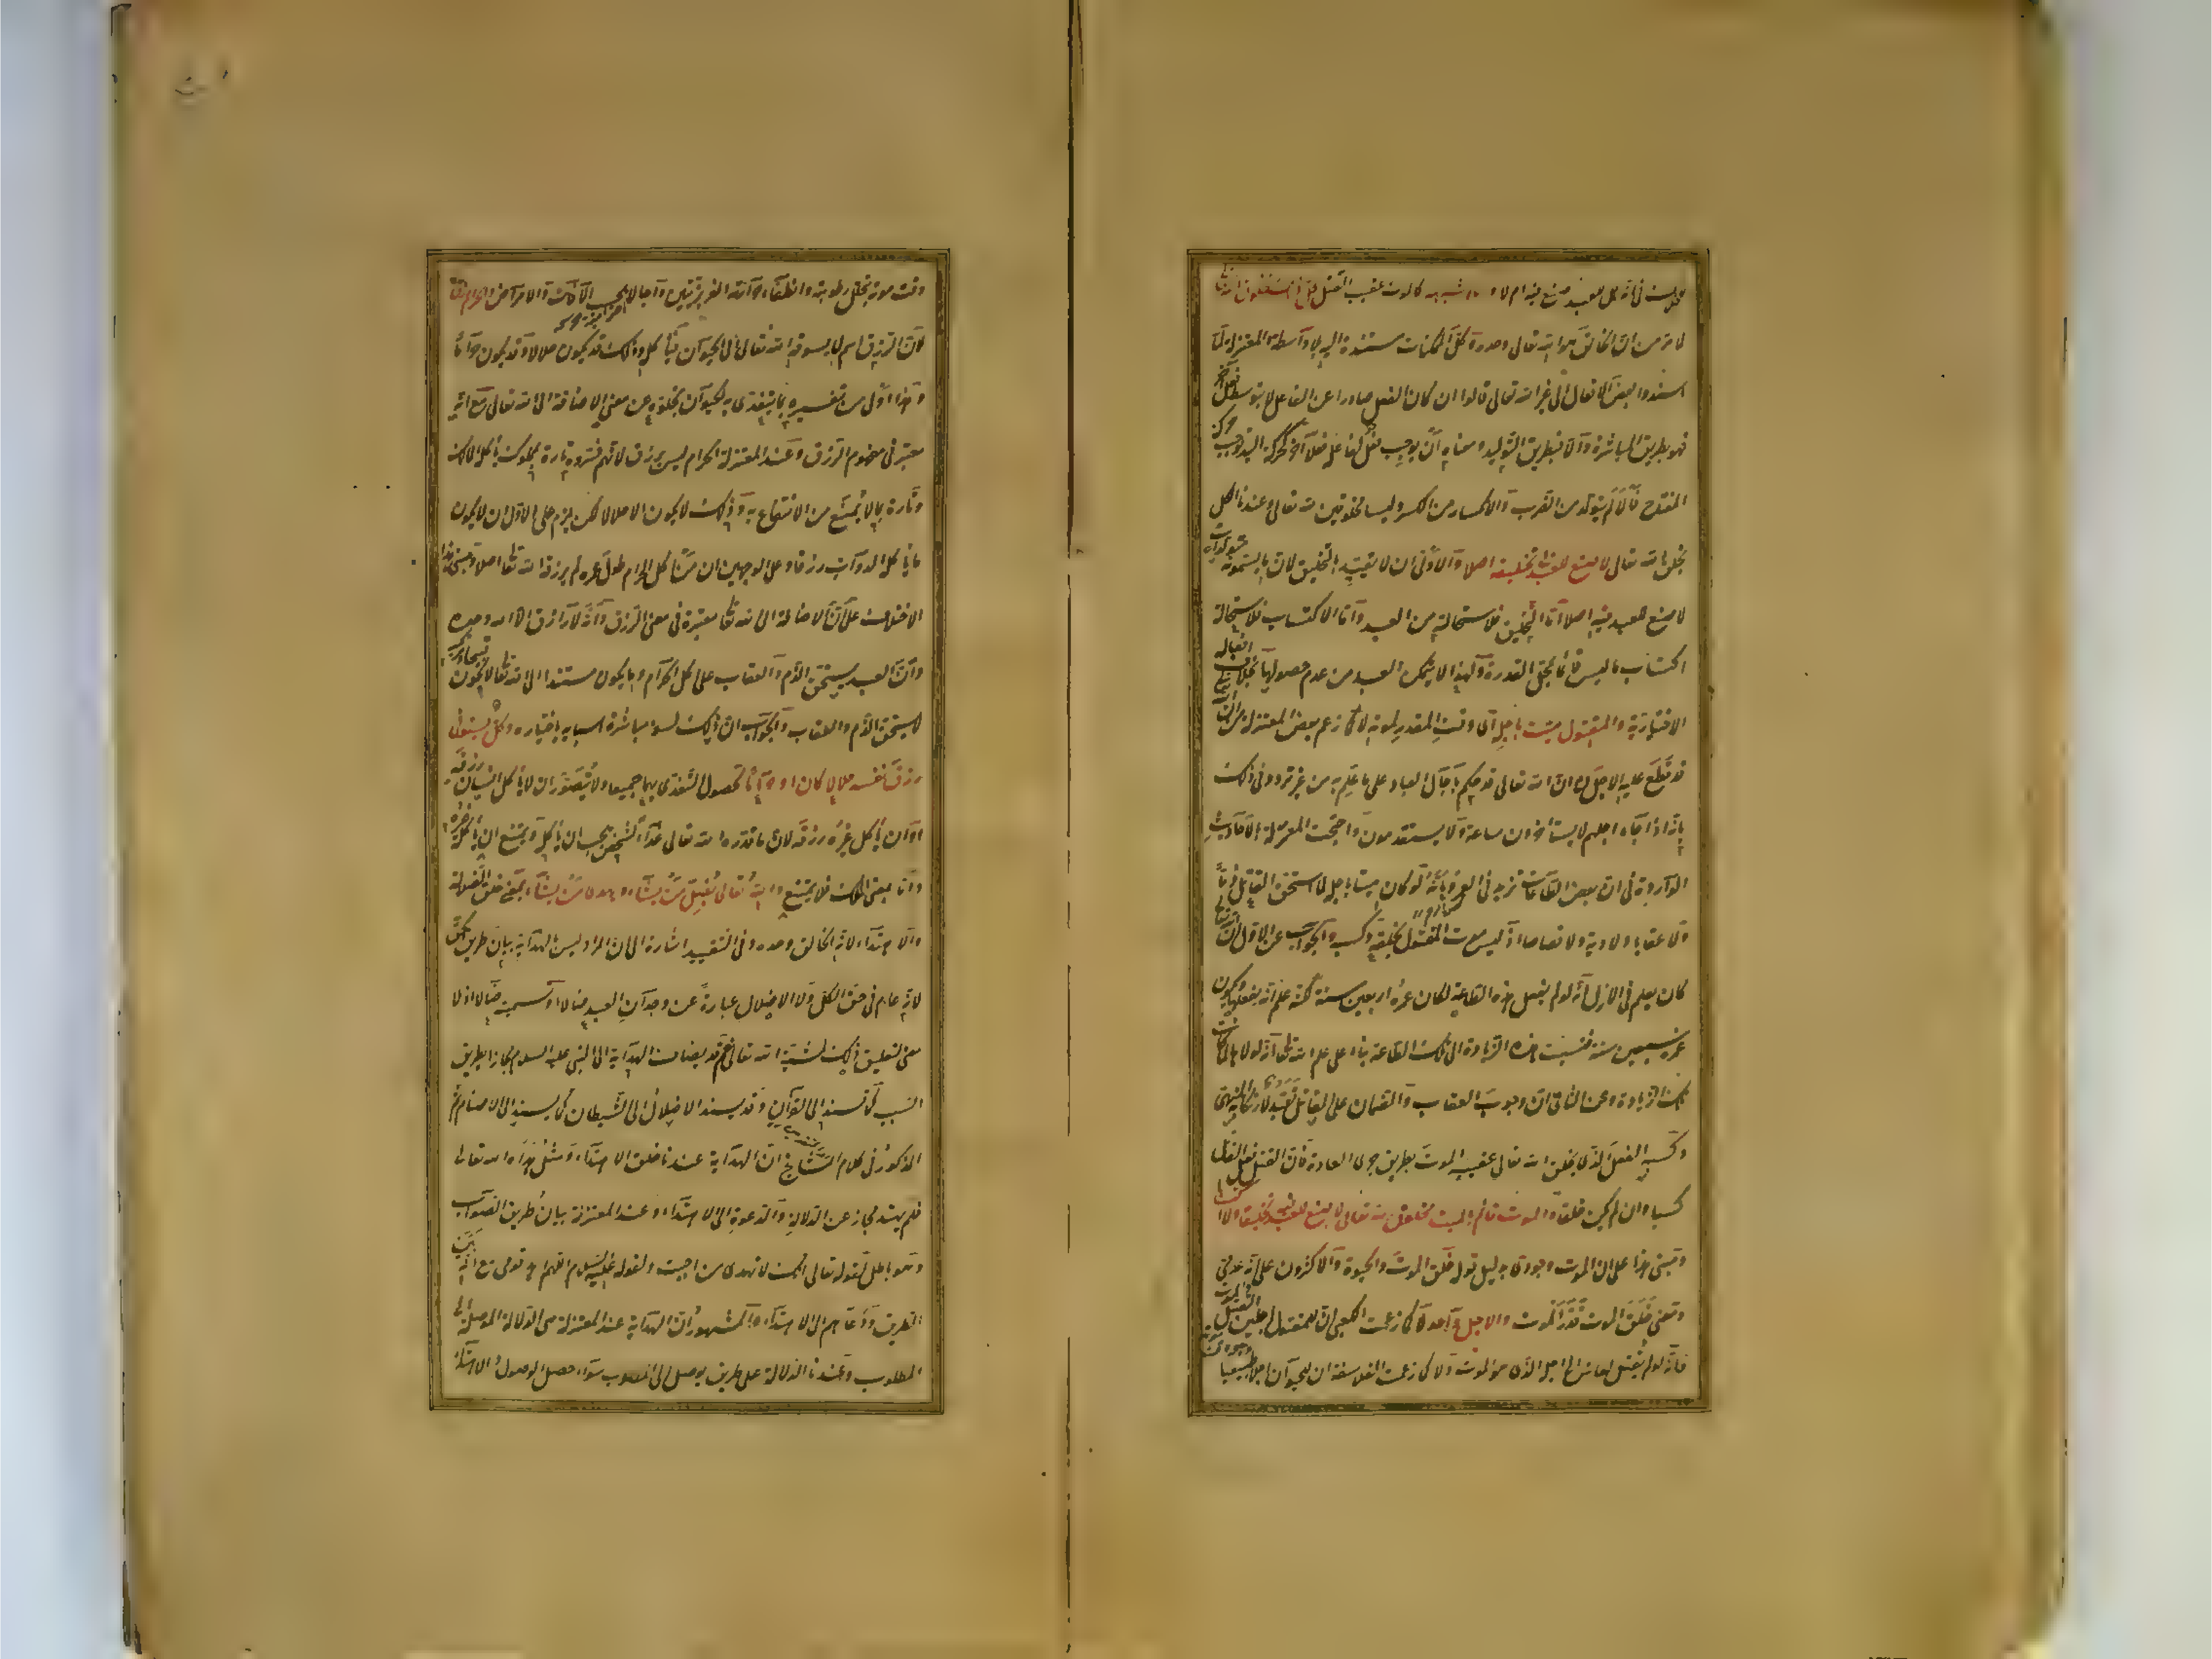 محل الخلاف في انه هل للعبد صنع فيه ام لا وما اشبهه كالموت عقيب القتل كل ذلك مخلوق الله تعالى
لما مر من ان الخالق هو الله تعالى وحده وان كل الممكنات مستندة اليه بلا واسطة والمعتزلة لما
اسندوا بعض الافعال الى غير الله تعالى قالوا ان كان الفعل صادرا عن الفاعل لا بتوسط فعل آخر
فهو بطريق المباشرة والا فبطريق التوليد ومعناه ان يوجب فعل لفاعله فعلا آخر كحركة اليد توجب حركة
المفتاح فالالم يتولد من الضرب والانكسار من الكسر وليسا مخلوقين لله تعالى وعندنا الكل
بخلق الله تعالى لا صنع للعبد في تخليقه اصلا والاولى ان لا يقيد بالتخليق لان ما يسمونه متولدات
لا صنع للعبد فيه اصلا اما التخليق فلاستحالته من العبد واما الاكتساب فلاستحالة
اكتساب ما ليس قائما بمحل القدرة ولهذا لا يتمكن العبد من عدم حصولها بخلاف افعاله
الاختيارية والمقتول ميت باجله اى وقت المقدر لموته لا كما زعم بعض المعتزلة من ان الله
قد قطع عليه الاجل لنا ان الله تعالى قد حكم بآجال العباد على ما علم به من غير تردد وفي ذلك
بانه اذا جاء اجلهم لا يستأخرون ساعة ولا يستقدمون واحتجت المعتزلة بالاحاديث
الواردة في ان بعض الطاعات تزيد في العمر وبانه لو كان ميتا باجله لما استحق القاتل ذما
ولا عقابا ولا دية ولا قصاصا اذ ليس موت المقتول بخلقه وكسبه والجواب عن الاول ان الله تعالى
كان يعلم في الازل انه لو لم يفعل هذه الطاعة لكان عمره اربعين سنة لكنه علم انه يفعلها ويكون
عمره سبعين سنة فنسبت هذه الزيادة الى تلك الطاعة بناء على علم الله تعالى انه لولاها لما كانت
تلك الزيادة وعن الثاني ان وجوب العقاب والضمان على القاتل تعبدي لارتكابه المنهى
وكسبه الفعل الذى يخلق الله تعالى عقيبه الموت بطريق جرى العادة فان القتل فعل القاتل
كسبا وان لم يكن خلقا والموت قائم بالميت مخلوق لله تعالى لا صنع للعبد فيه تخليقا ولا اكتسابا
ومبنى هذا على ان الموت وجودى بدليل قوله خلق الموت والحيوة والاكثرون على انه عدمى
ومعنى خلق الموت قدر الموت والاجل واحد لا كما زعمت الكعبى ان للمقتول اجلين القتل والموت
فانه لو لم يقتل لعاش الى اجله الذى هو الموت ولا كما زعمت الفلاسفة ان للحيوان اجلا طبيعيا
وقت موته بتحلل رطوبته وانطفاء حرارته الغريزيتين وآجالا بحسب الآفات والامراض والحرام رزق
لان الرزق اسم لما يسوقه الله تعالى الى الحيوان فيأكله وذلك قد يكون حلالا وقد يكون حراما
وهذا اولى من تفسيره بما يتغذى به الحيوان لخلوه عن معنى الاضافة الى الله تعالى مع انه
معتبر في مفهوم الرزق وعند المعتزلة الحرام ليس برزق لانهم فسروه تارة بمملوك يأكله المالك
وتارة بما لا يمنع من الانتفاع به وذلك لا يكون الا حلالا لكن يلزم على الاول ان لا يكون
ما يأكله الدواب رزقا وعلى الوجهين ان من اكل الحرام طول عمره لم يرزقه الله تعالى اصلا ومبنى هذا
الاختلاف على ان الاضافة الى الله تعالى معتبرة في معنى الرزق وانه لا رازق الا الله وحده
وان العبد يستحق الذم والعقاب على اكل الحرام وما يكون مستندا الى الله تعالى لا يكون قبيحا ومرتكبه
لا يستحق الذم والعقاب والجواب ان ذلك لسوء مباشرة اسبابه باختياره وكل يستوفى
رزق نفسه حلالا كان او حراما لحصول التغذى بهما جميعا ولا يتصور ان لا يأكل انسان رزقه
او ان يأكل غيره رزقه لان ما قدره الله تعالى غذاء لشخص يجب ان يأكله ويمتنع ان يأكله غيره
واما بمعنى الملك فلا يمتنع والله تعالى يضل من يشاء ويهدى من يشاء بمعنى خلق الضلالة
والاهتداء لانه الخالق وحده وفي التقييد اشارة الى ان المراد ليس بالهداية بيان طريق الحق
لانه عام في حق الكل ولا الاضلال عبارة عن وجدان العبد ضالا او تسميته ضالا اذ لا
معنى لتعليق ذلك بمشية الله تعالى نعم قد يضاف الهداية الى النبى عليه السلام مجازا بطريق
السبب كما تسند الى القرآن وقد يسند الاضلال الى الشيطان كما يسند الى الاصنام ثم
المذكور في كلام المشايخ ان الهداية عندنا خلق الاهتداء ومثل هداه الله تعالى
فلم يهتد مجاز عن الدلالة والدعوة الى الاهتداء وعند المعتزلة بيان طريق الصواب
وهو باطل لقوله تعالى انك لا تهدى من احببت ولقوله عليه السلام اللهم اهد قومى مع انه بين
الطريق ودعاهم الى الاهتداء والمشهور ان الهداية عند المعتزلة هى الدلالة الموصلة الى
المطلوب وعندنا الدلالة على طريق يوصل الى المطلوب سواء حصل الوصول والاهتداء